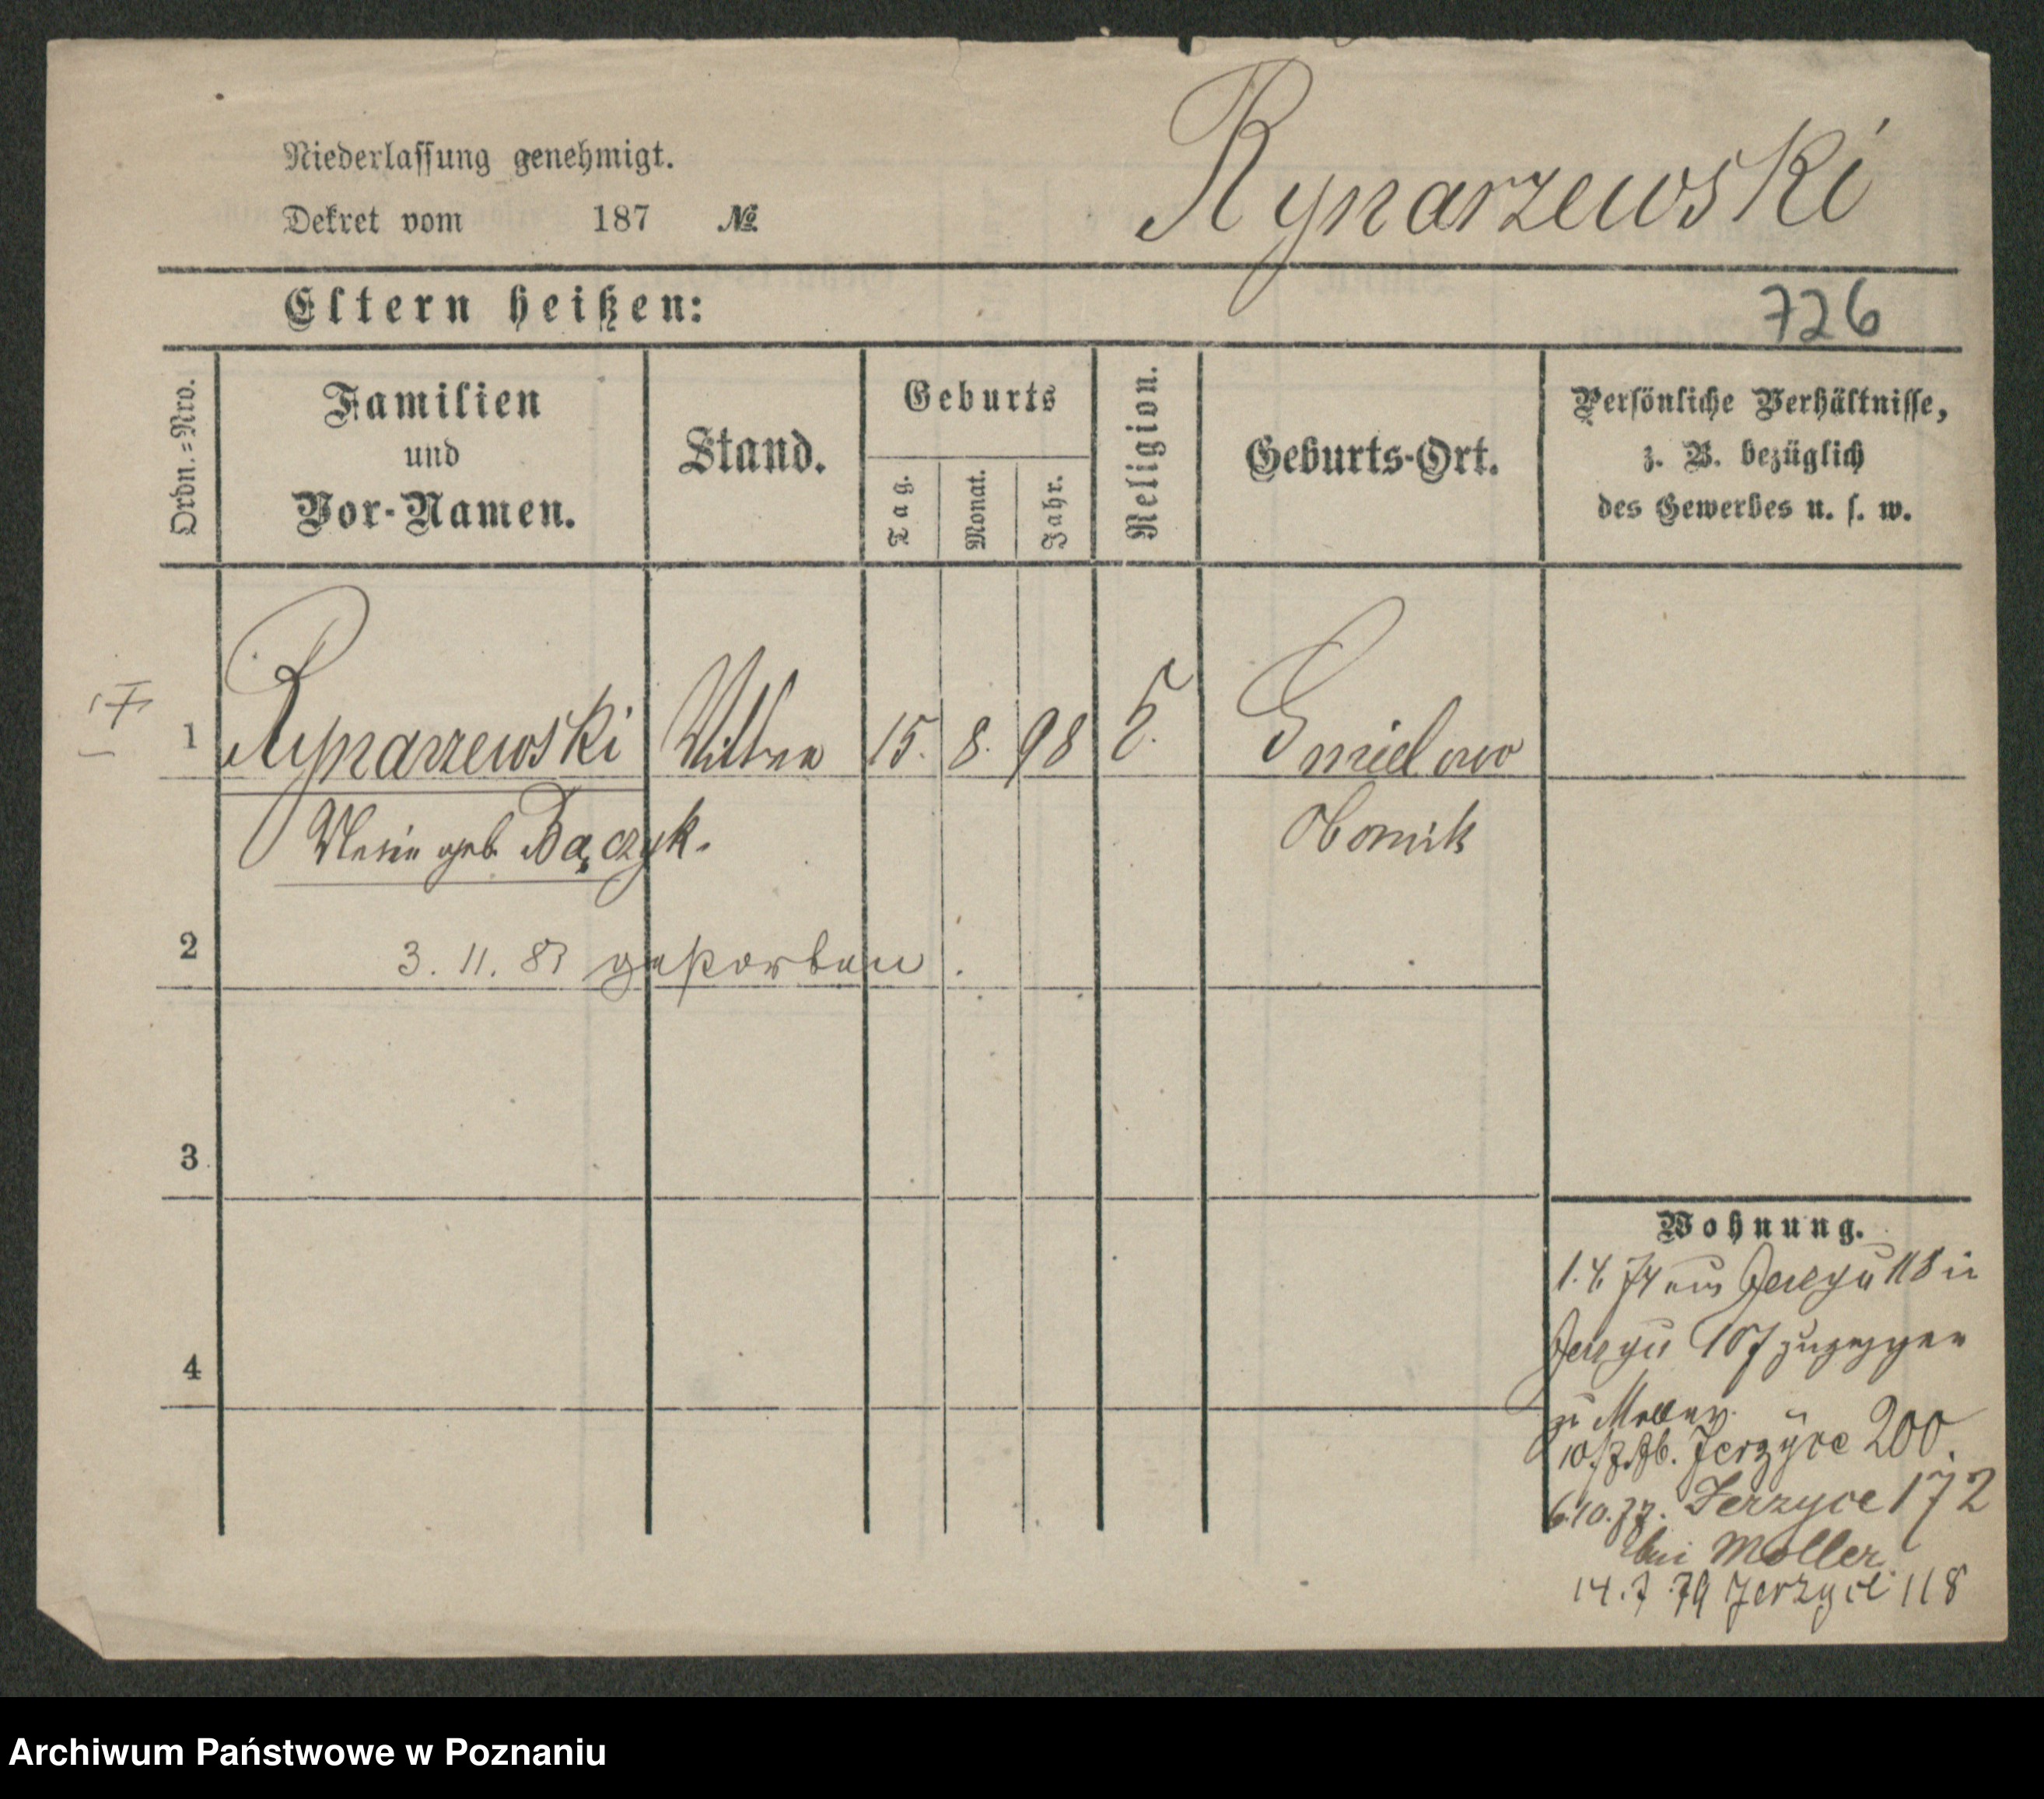 Niederlassung genehmigt.
Dekret vom 187 №
Rynarzewski
Eltern heißen:
726
Ordn.=Nro.
Familien
und
Vor-Namen.
Stand.
Geburts
Tag.
Monat.
Jahr.
Religion.
Geburts-Ort.
Persönliche Verhältnisse,
z. B. bezüglich
des Gewerbes u. s. w.
1 Rynarzewski 15. 8. 98 Gmielowo
geb. Bączyk.
Obornik
2
3. 11. 83 gestorben.
3
4
Wohnung.
1. 4. 74 aus 118 in
107 zugezogen
zu
Jerzyce 200.
6.10.77. Jerzyce 172
bei Moller
14.7.79 Jerzyce 118
Archiwum Państwowe w Poznaniu